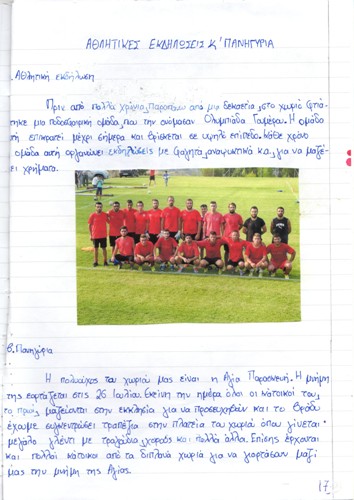 ΑΘΛΗΤΙΚΕΣ ΕΚΔΗΛΩΣΕΙΣ Κ' ΠΑΝΗΓΥΡΙΑ
α. Αθλητική εκδήλωση
Πριν από πολλά χρόνια, παραπάνω από μια δεκαετία, στο χωριό φτιά-
τηκε μια ποδοσφαιρική ομάδα, που την ονόμασαν Ολυμπιάδα Η ομάδα
τή επικρατεί μέχρι σήμερα και βρίσκεται σε υψηλό επίπεδο. Κάθε χρόνο
ομάδα αυτή οργανώνει εκδηλώσεις με φαγητά, αναψυκτικά κ.α., για να μαζέ-
ει χρήματα.
β. Πανηγύρια
Η πολιούχος του χωριού μας είναι η Αγία Παρασκευή. Η μνήμη
της εορτάζεται στις 26 Ιουλίου. Εκείνη την ημέρα όλοι οι κάτοικοι τους
το πρωί μαζεύονται στην εκκλησία για να προσευχηθούν και το βράδυ
έχουμε συγκεντρώσει τραπέζια στην πλατεία του χωριού όπου γίνεται
μεγάλο γλέντι με τραγούδια, χορούς και πολλά άλλα. Επίσης έρχονται
και πολλοί κάτοικοι από τα διπλανά χωριά για να γιορτάσουν μαζί
μας την μνήμη της Αγίας.
17